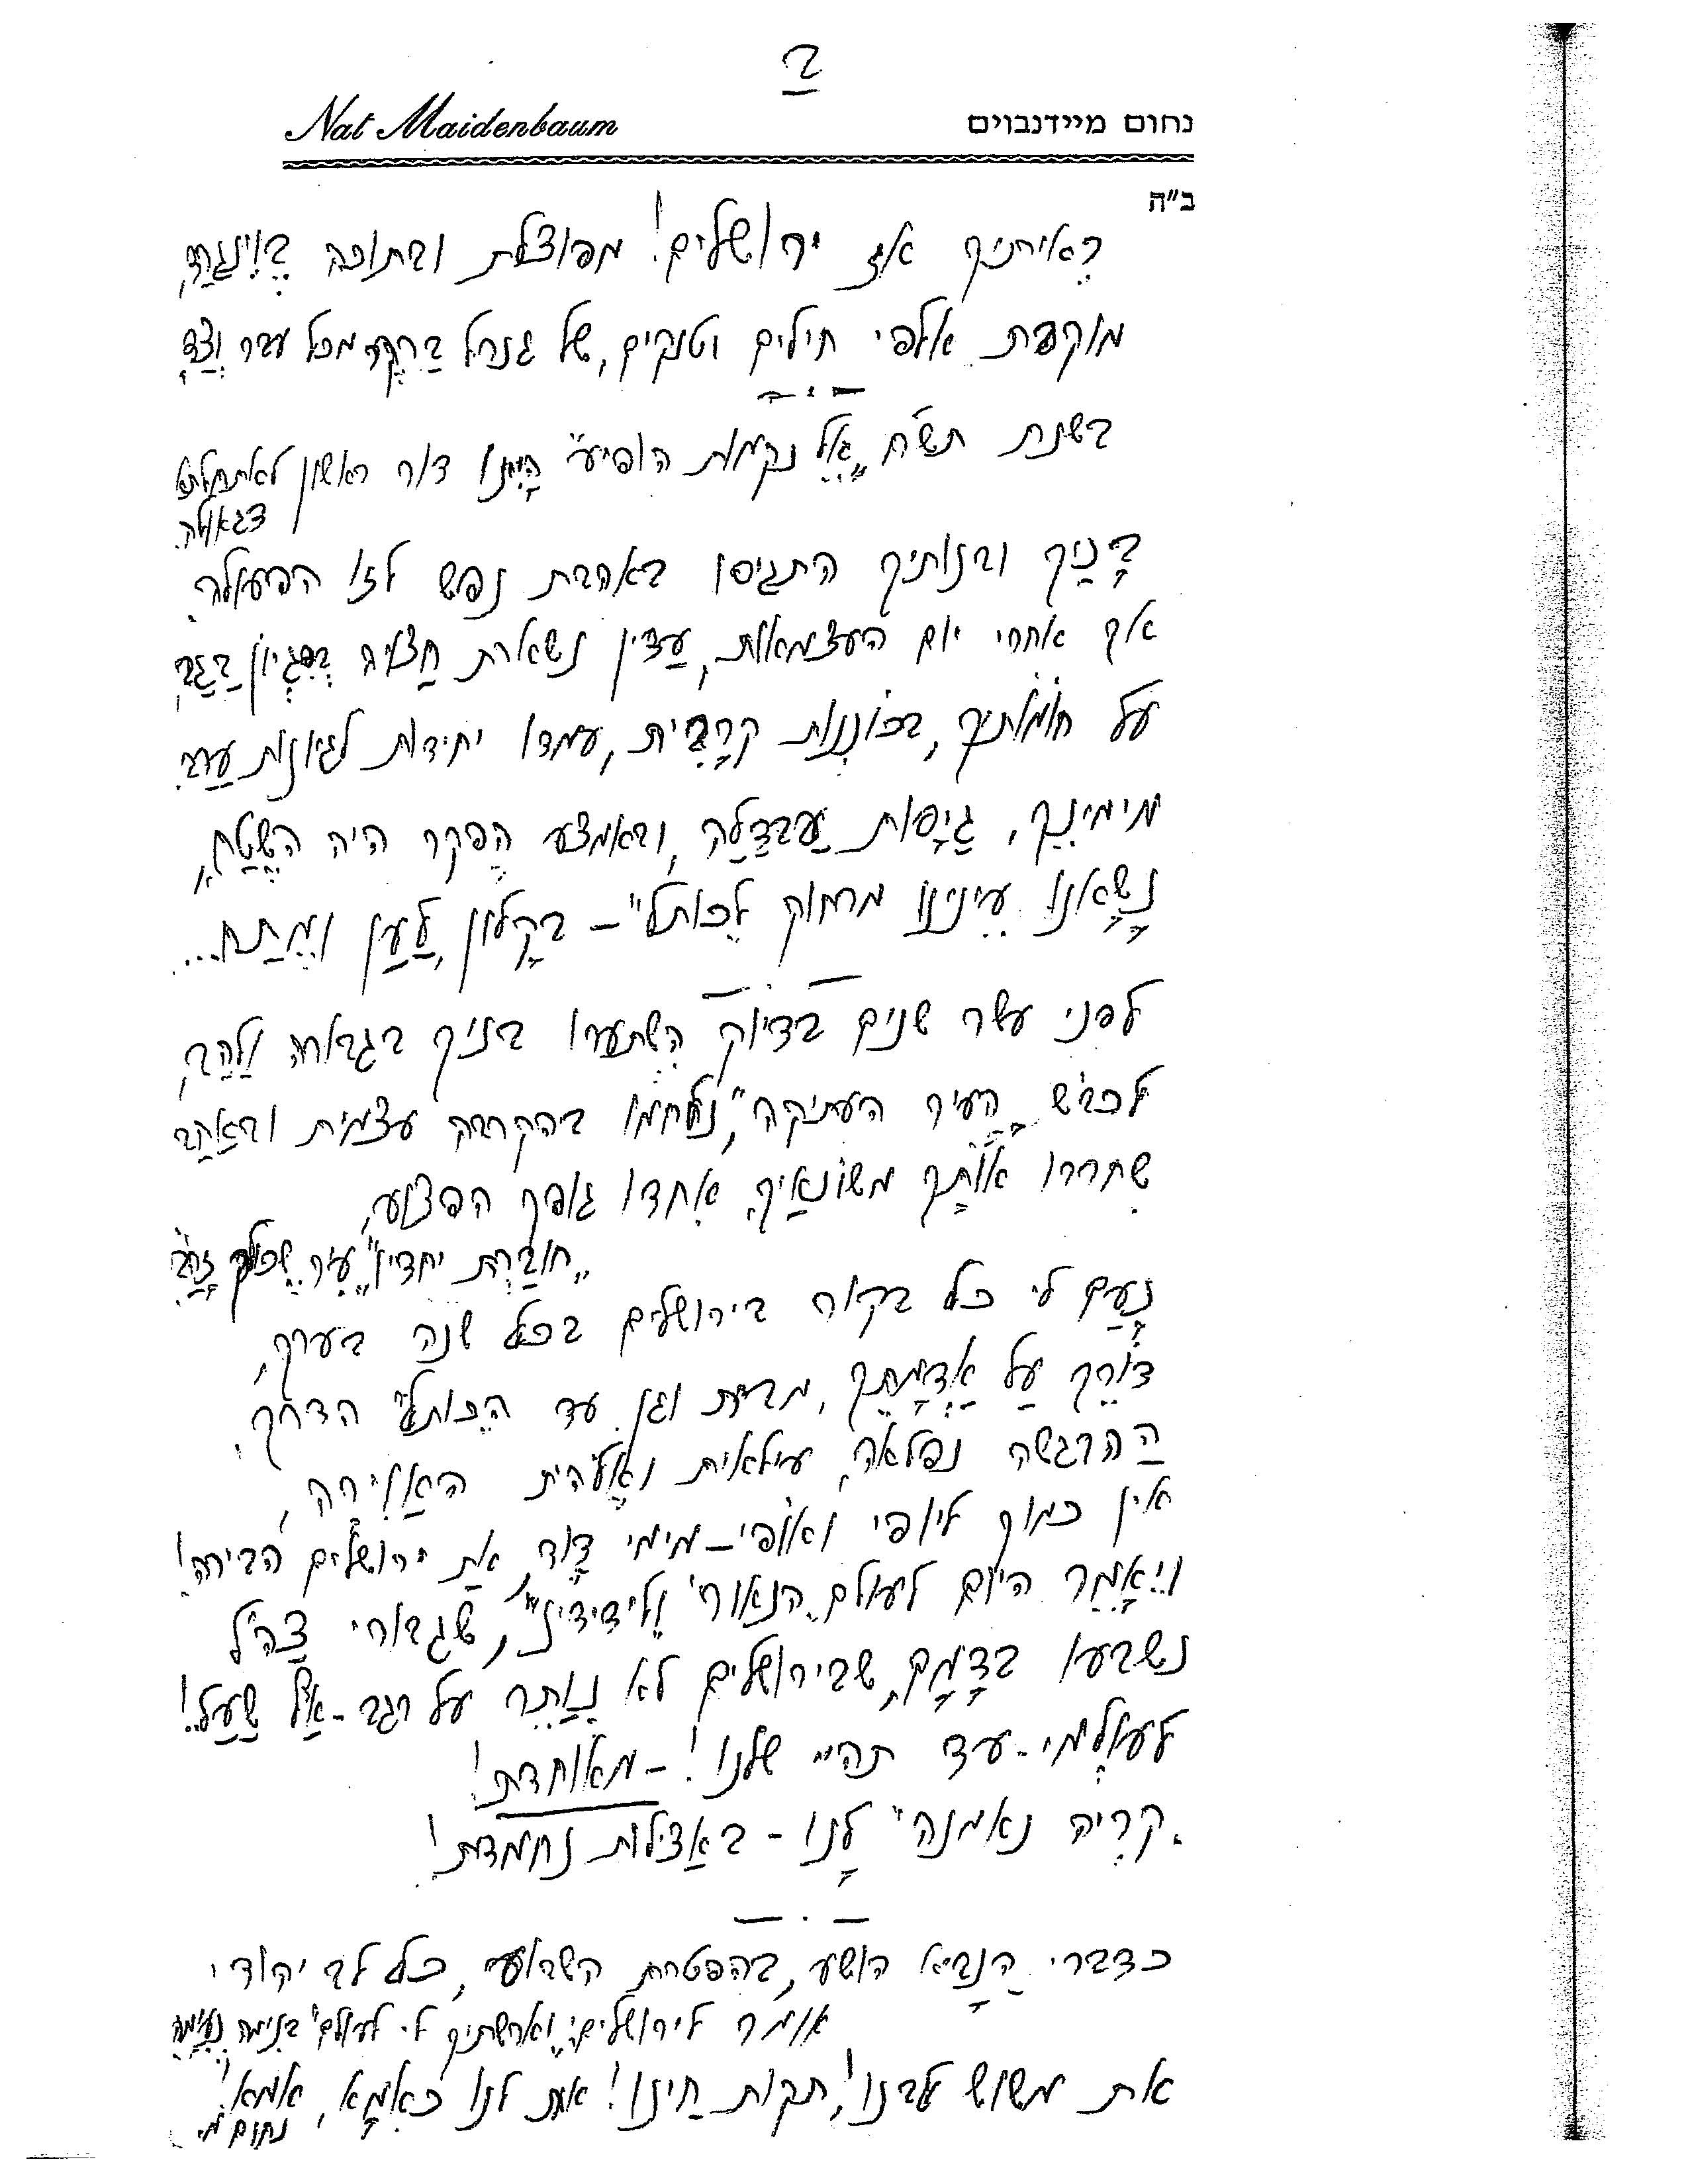 ב
Nat Maidenbaum נחום מיידנבוים
ב"ה
רְאיתיך אז ירושלים! מפוצלת ובתוכה
מוקפת אלפי חילים וטנקים, של גנרל בַּרְקֶר מכל עבר וָצַד
בשנת תש"ח "אֵל נקמות הופיע" הָיִינו דור ראשון לאתחלתא
דגאולה.
בָּנַיִך ובנותיך התגיסו באהבת נפש לזו הפעולה.
אך אחרי יום העצמאות, עַדין נשארת חֲצויה
על חומותיך, בכוננות קרָבִית, עמדו יחידות לגיונות עֲרב.
מימינֵך, גַיָסות עַבְּדַלַה, ובאמצע הֶפקר היה השֶטַח,
נָשָאנו עֵינינו מרחוק לַ"כותל" - בקָלון, לַעַג ומֶתַח...
לפני עשר שנים בדיוק הִשתערו בניך בגבורה ולַהַב,
לכבוש "הָעיר העתיקה", נלחמו בהקרבה עצמית ובאַהַב
שִחררו אותָך משונאַיִך, אִחדו גופך הפצוע,
"חוּבְּרה יחדיו" עיר שכולך זָהָב.
נָעַם לי כל בקור בירושלים בכל שנה בערך,
דורֵך עַל אַדְמָתֵך, מבית וגן עד הַ"כותל" הדרך,
הַהרגשה נפלאה, עילאית ואֱלֹהית האַוִירה,
אין כמוך ליופי ואופי - מימי דָוִד, אַתְ ירושלים הבירה!
ויֵאָמֵר היום לעולם "הנאור" ו"לידידינו", שגבורי צַהַ"ל
נשבעו בדָמָם, שבירושלים לא נְוַתֵר על רגב - אַף שַעַל!
לעולְמי-עד תהיי שלנו! - מאוחדת!
"קִריה נאמנה" לָנו - באֲצילות נחמדת!
כדברי הַנָבִיא הושע, בהפטרת השבוע, כל לב יהודי
אומר לירושלים: "וארשתיך לי לעולם" בנימה נְעִימה
את משוש לבנו! תקות חַיינו! את לנו כְּאִמָא, אמא!
נחום מ'